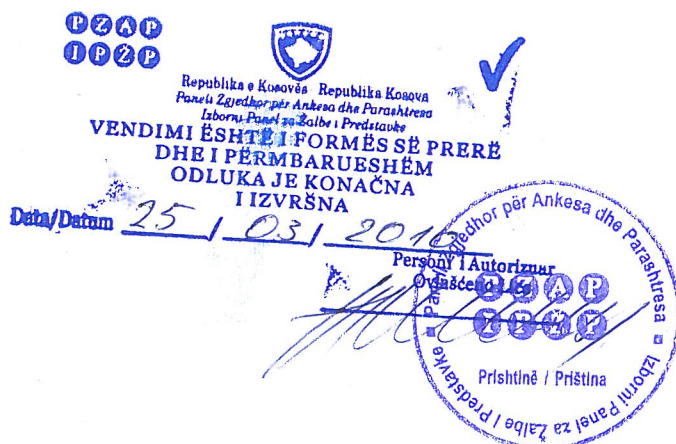 PZAP
IPŽP
Republika e Kosovës Republika Kosova
Paneli Zgjedhor për Ankesa dhe Parashtresa
Izborni Panel za Žalbe i Predstavke
VENDIMI ËSHTË I FORMËS SË PRERË
DHE I PËRMBARUESHËM
ODLUKA JE KONAČNA
I IZVRŠNA
Data/Datum 25 / 03 / 2016
Personi i Autorizuar
Ovlašćeno Lice
Paneli Zgjedhor për Ankesa dhe Parashtresa
PZAP
IPŽP
Prishtinë / Priština
Izborni Panel za Žalbe i Predstavke